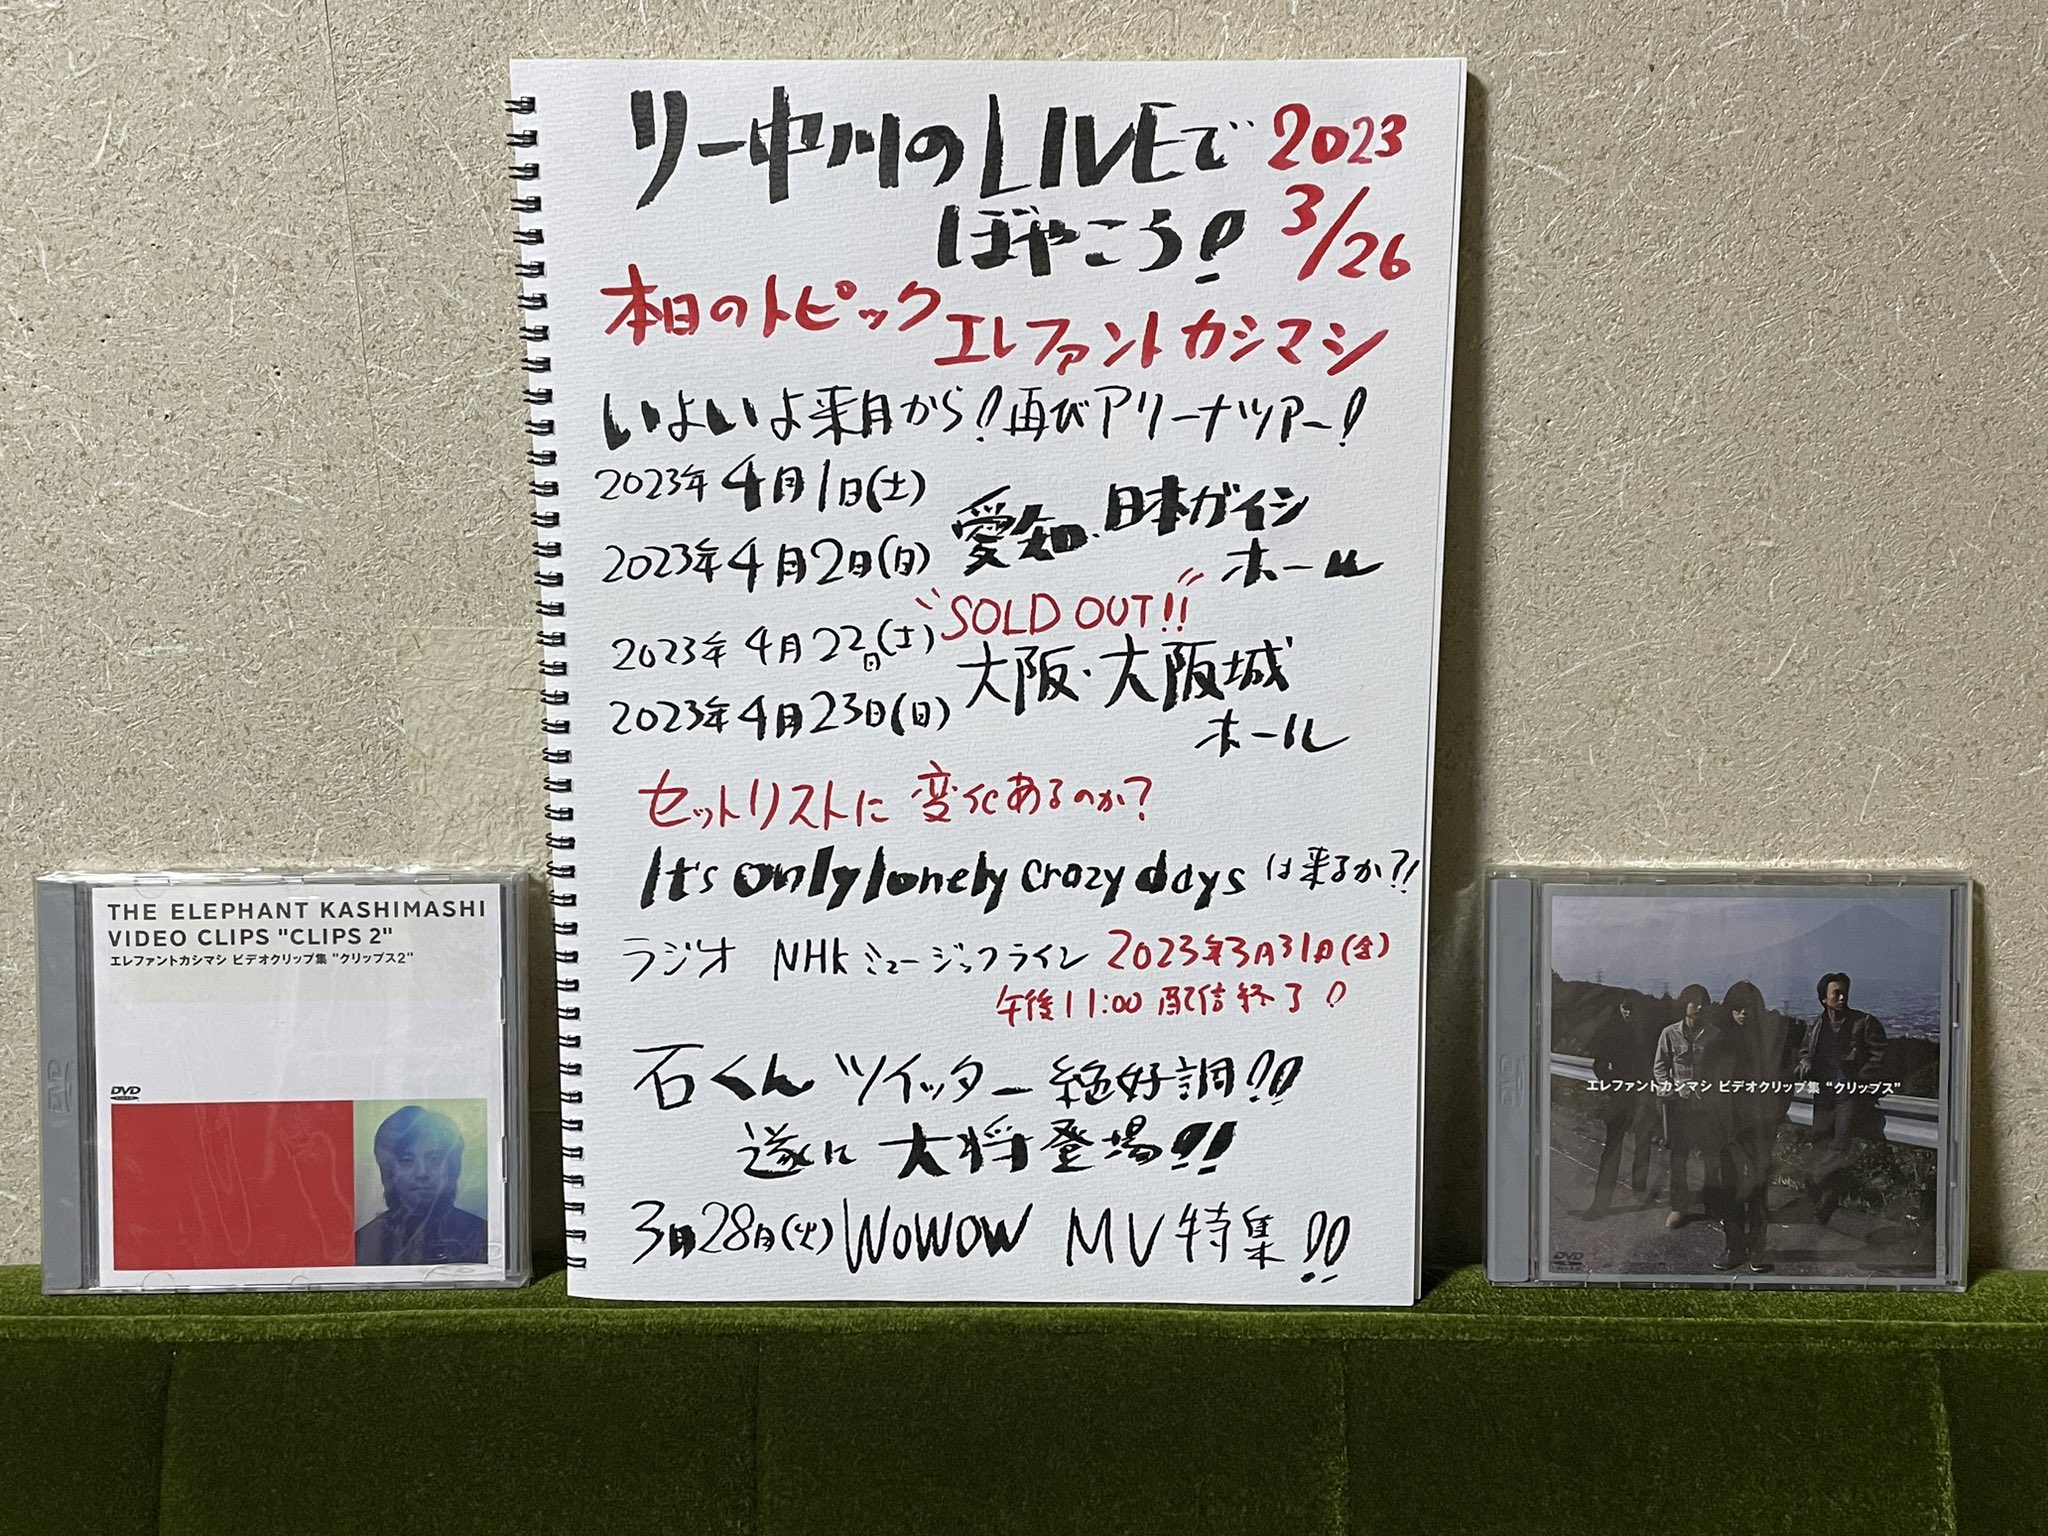 リー中川のLIVEで
ぼやこう!
2023
3/26
本日のトピック
エレファントカシマシ
いよいよ来月から!再びアリーナツアー!
2023年4月1日(土)
2023年4月2日(日)
愛知・日本ガイシ
ホール
"SOLD OUT!!"
2023年4月22日(土)
2023年4月23日(日)
大阪・大阪城
ホール
セットリストに変化あるのか?
It's only lonely crazy daysは来るか?!
ラジオ NHKミュージックライン 2023年3月31日(金)
午後11:00配信終了!
石くんツイッター絶好調!!
遂に大将登場!!
3月28日(火)WOWOW MV特集!!
THE ELEPHANT KASHIMASHI
VIDEO CLIPS "CLIPS 2"
エレファントカシマシ ビデオクリップ集 "クリップス2"
DVD
DVD
エレファントカシマシ ビデオクリップ集 "クリップス"
DVD